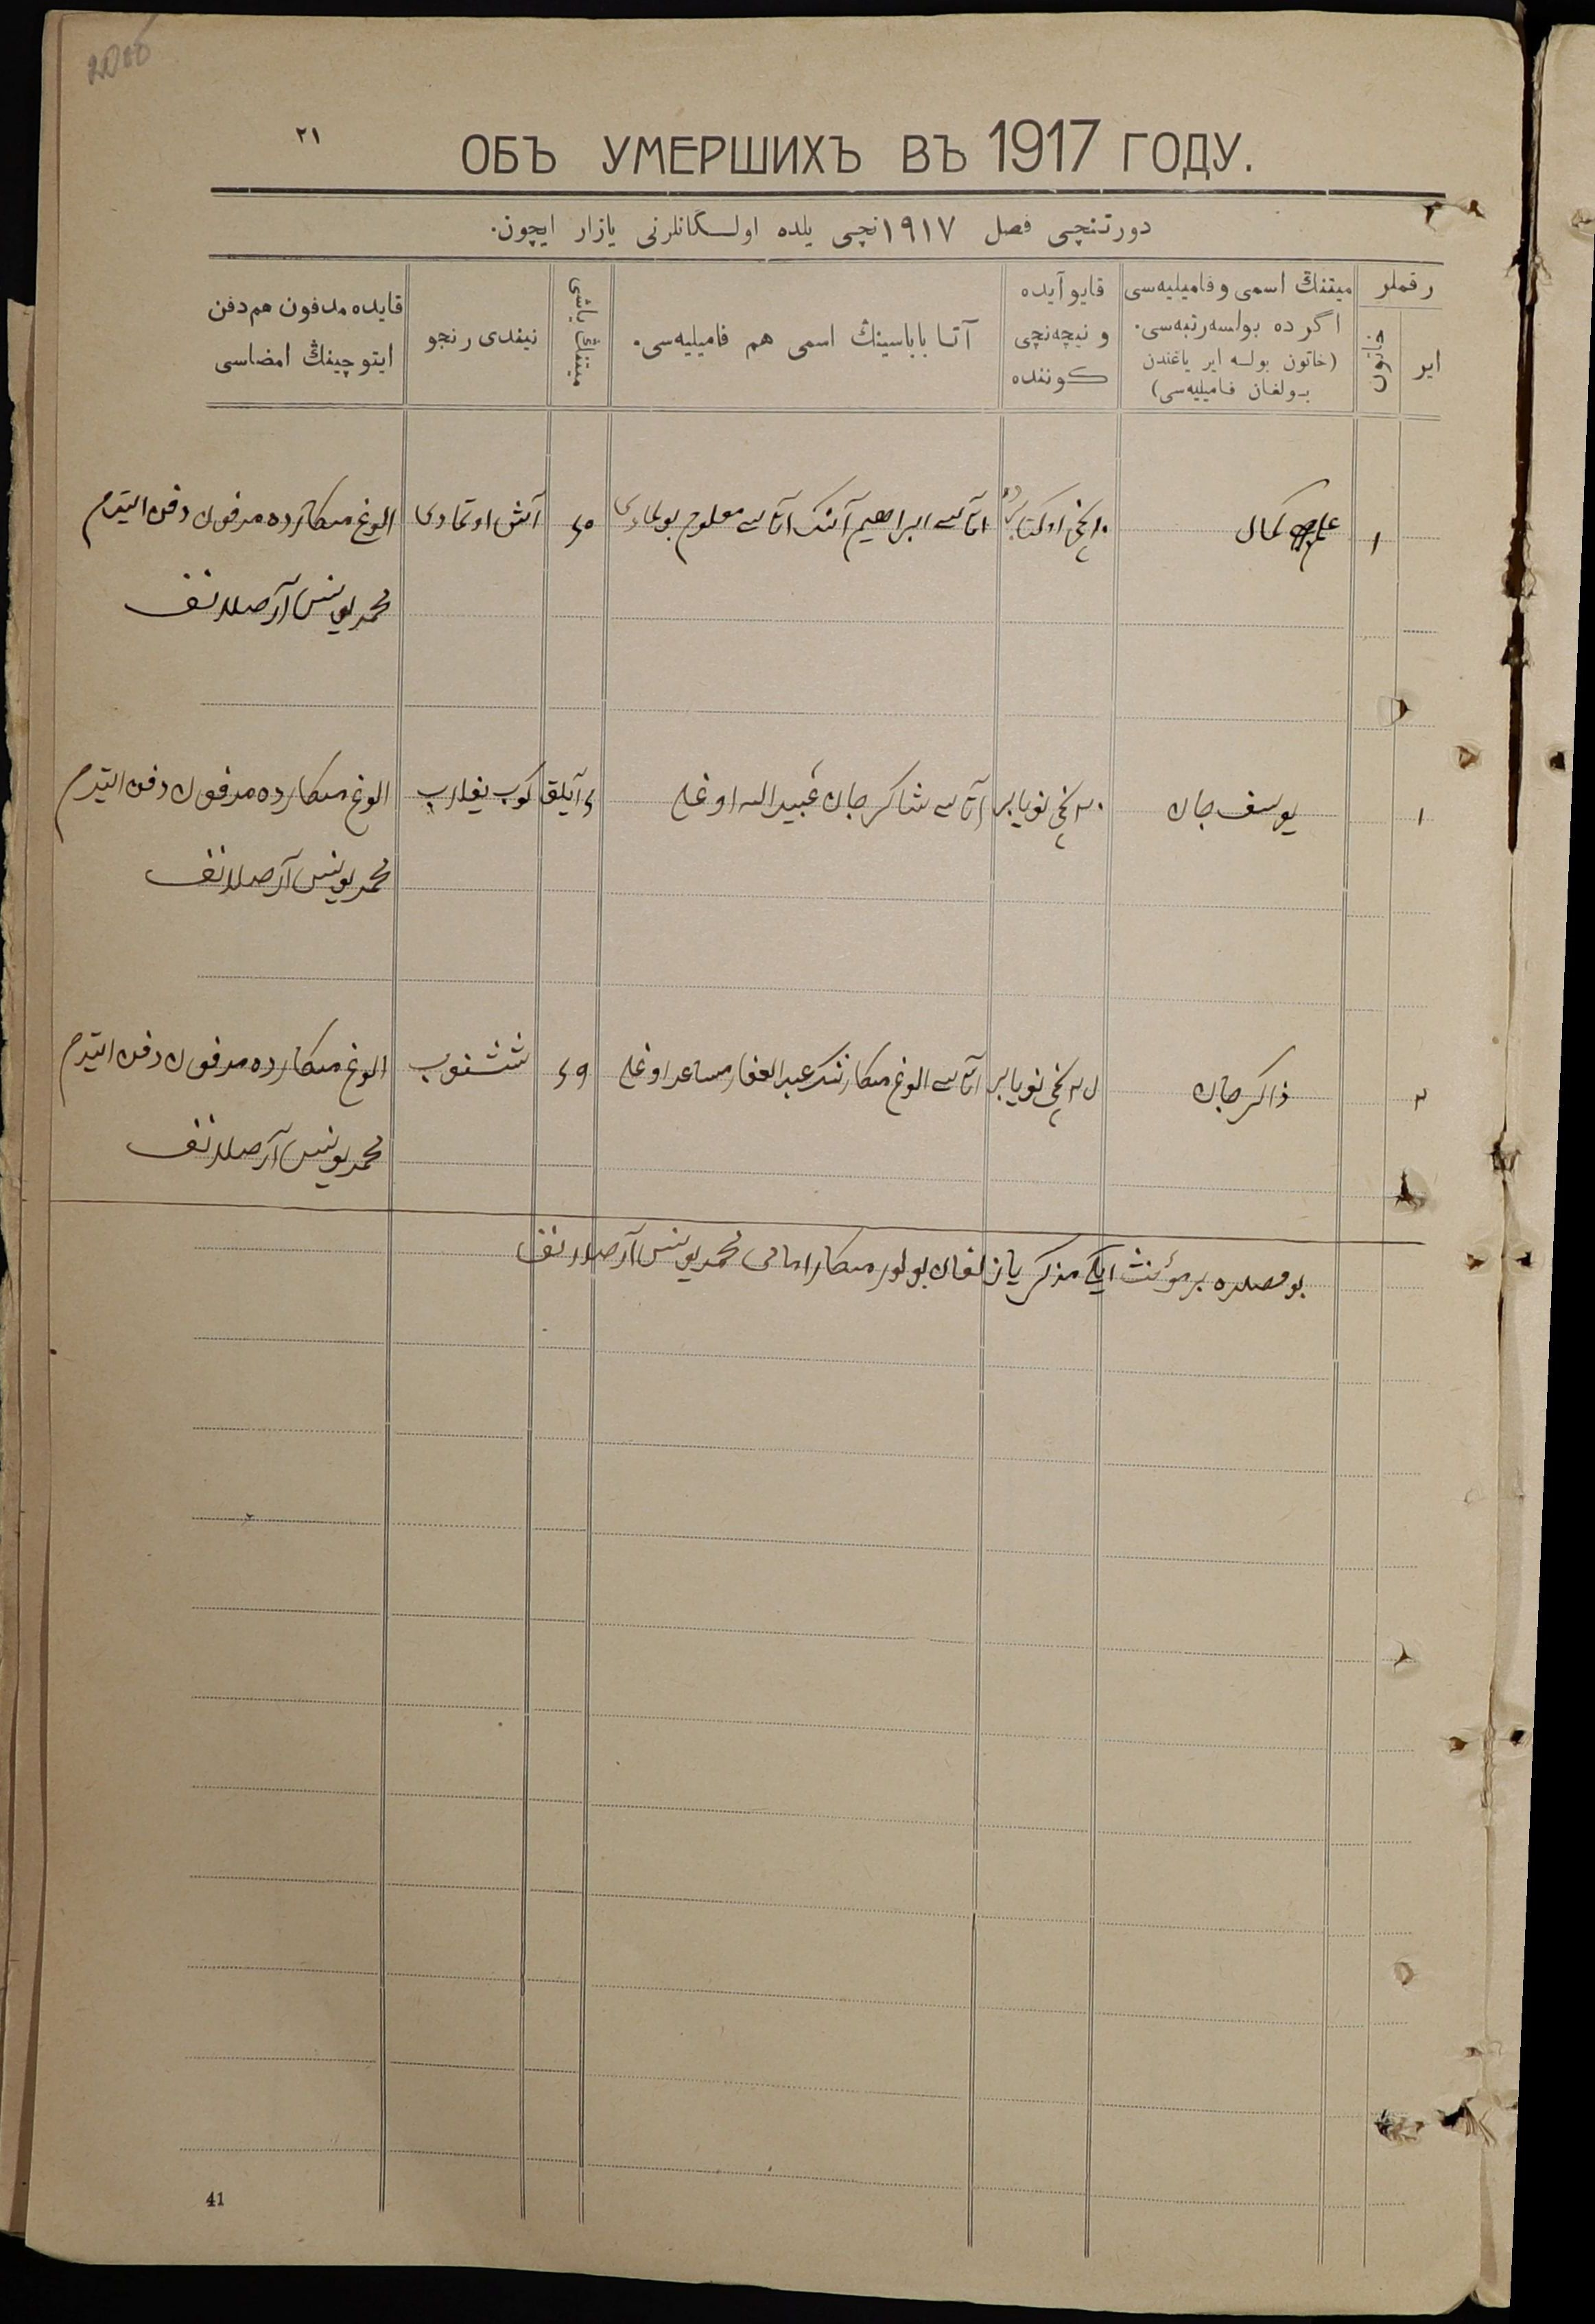 ٢١
ОБЪ УМЕРШИХЪ ВЪ 1917 ГОДУ.
دورتنچی فصل ١٩١٧ نچی یلده اولـگانلرنی یازار ایچون.
رقملر
ایر
خاتون
میتنڭ اسمی وفامیلیه‌سی
اگر ده بولسه رتبه‌سی.
(خاتون بولسه ایر یاغندن
بولغان فامیلیه‌سی)
قایو آیده
و نیچه‌نچی
كوننده
آتا باباسینڭ اسمی هم فامیلیه‌سی.
میتنڭ یاشی
نیندی رنجو
قایده مدفون هم دفن
ایتوچینڭ امضاسی
١ كمال
اتاسی ابراهیم آننك اتاسی معلوم بولمادی
آش اوتمادی
الوغ مسكارده مدفون دفن ایتدم
محمد یونس آرصلانف
١ یوسف جان
نویابر
آتاسی شاكرجان عبید الله اوغلی
آیلق
الوغ مسكارده مدفون دفن ایتدم
محمد یونس آرصلانف
٢ ذاكرجان
نویابر
اتاسی الوغ مسكارننك عبد الغفار مساعد اوغلی
٥٩
الوغ مسكارده مدفون دفن ایتدم
محمد یونس آرصلانف
بو فصلده بر مؤنث ایكی مذكر یازلغان بولور مسكار امامی محمد یونس آرصلانف
41